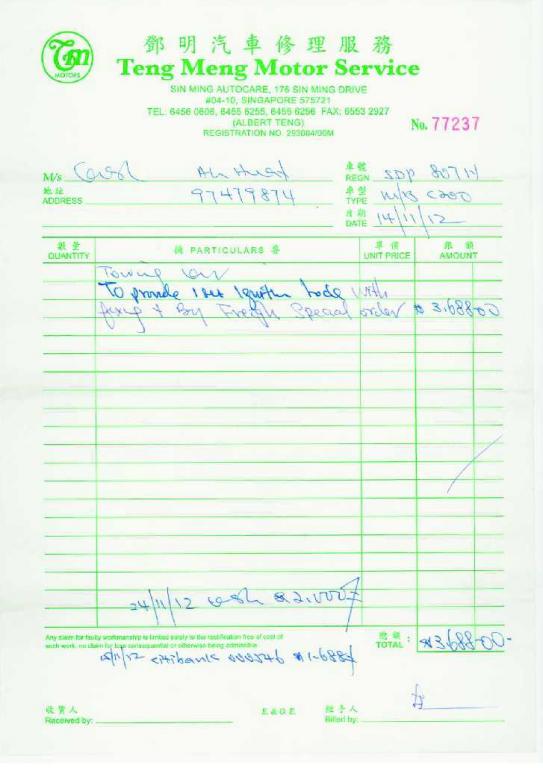 TMM
MOTORS
鄧明汽車修理服務
Teng Meng Motor Service
SIN MING AUTOCARE, 176 SIN MING DRIVE
#04-10, SINGAPORE 575721
TEL: 6456 0606, 6455 6255, 6455 6256 FAX: 6553 2927
(ALBERT TENG)
REGISTRATION NO. 293084/00M
No. 77237
M/s Cash Ah Huat
車號 REGN SDP 8071H
地址 ADDRESS 97479874
車型 TYPE M/B C200
日期 DATE 14/11/12
數量 QUANTITY
摘 PARTICULARS 要
單價 UNIT PRICE
銀額 AMOUNT
Towing car
To provide 1 set Ignition with
fixing & By Freigh Special order $3,688-00
24/11/12 cash $2,000/
Any claim for faulty workmanship is limited solely to the rectification free of cost of
such work, no claim for loss consequential or otherwise being admissible
總額: TOTAL $3,688-00-
citibank 000546 $1,688/
收貨人
Received by:
E.&O.E
經手人
Billed by: